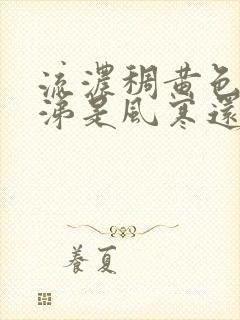 流濃稠黄色
涕是風寒還
養夏